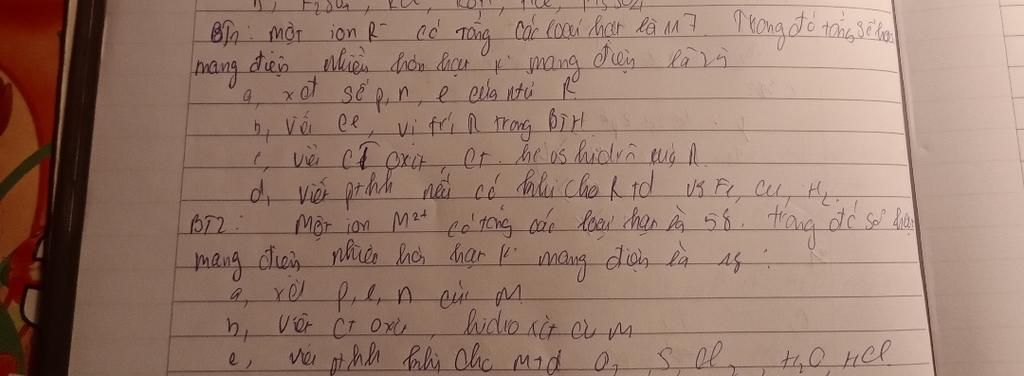 BT1: một ion R⁻ có tổng các loại hạt là 117. Trong đó tổng số hạt
mang điện nhiều hơn hạt k mang điện là 25
a, xđ số p, n, e của ntử R
b, viết ce, vị trí R trong BTH
c, viết CT oxit, CT h/c với hidrô của R
d, viết pthh nếu có khi cho R td vs Fe, Cu, H₂
BT2: Một ion M²⁺ có tổng các loại hạt là 58. trong đó số hạt
mang điện nhiều hơn hạt k mang điện là 18
a, xđ p, e, n của M
b, Viết CT oxit, hidroxit của M
c, viết pthh khi cho M td O₂, S, Cl₂, H₂O, HCl